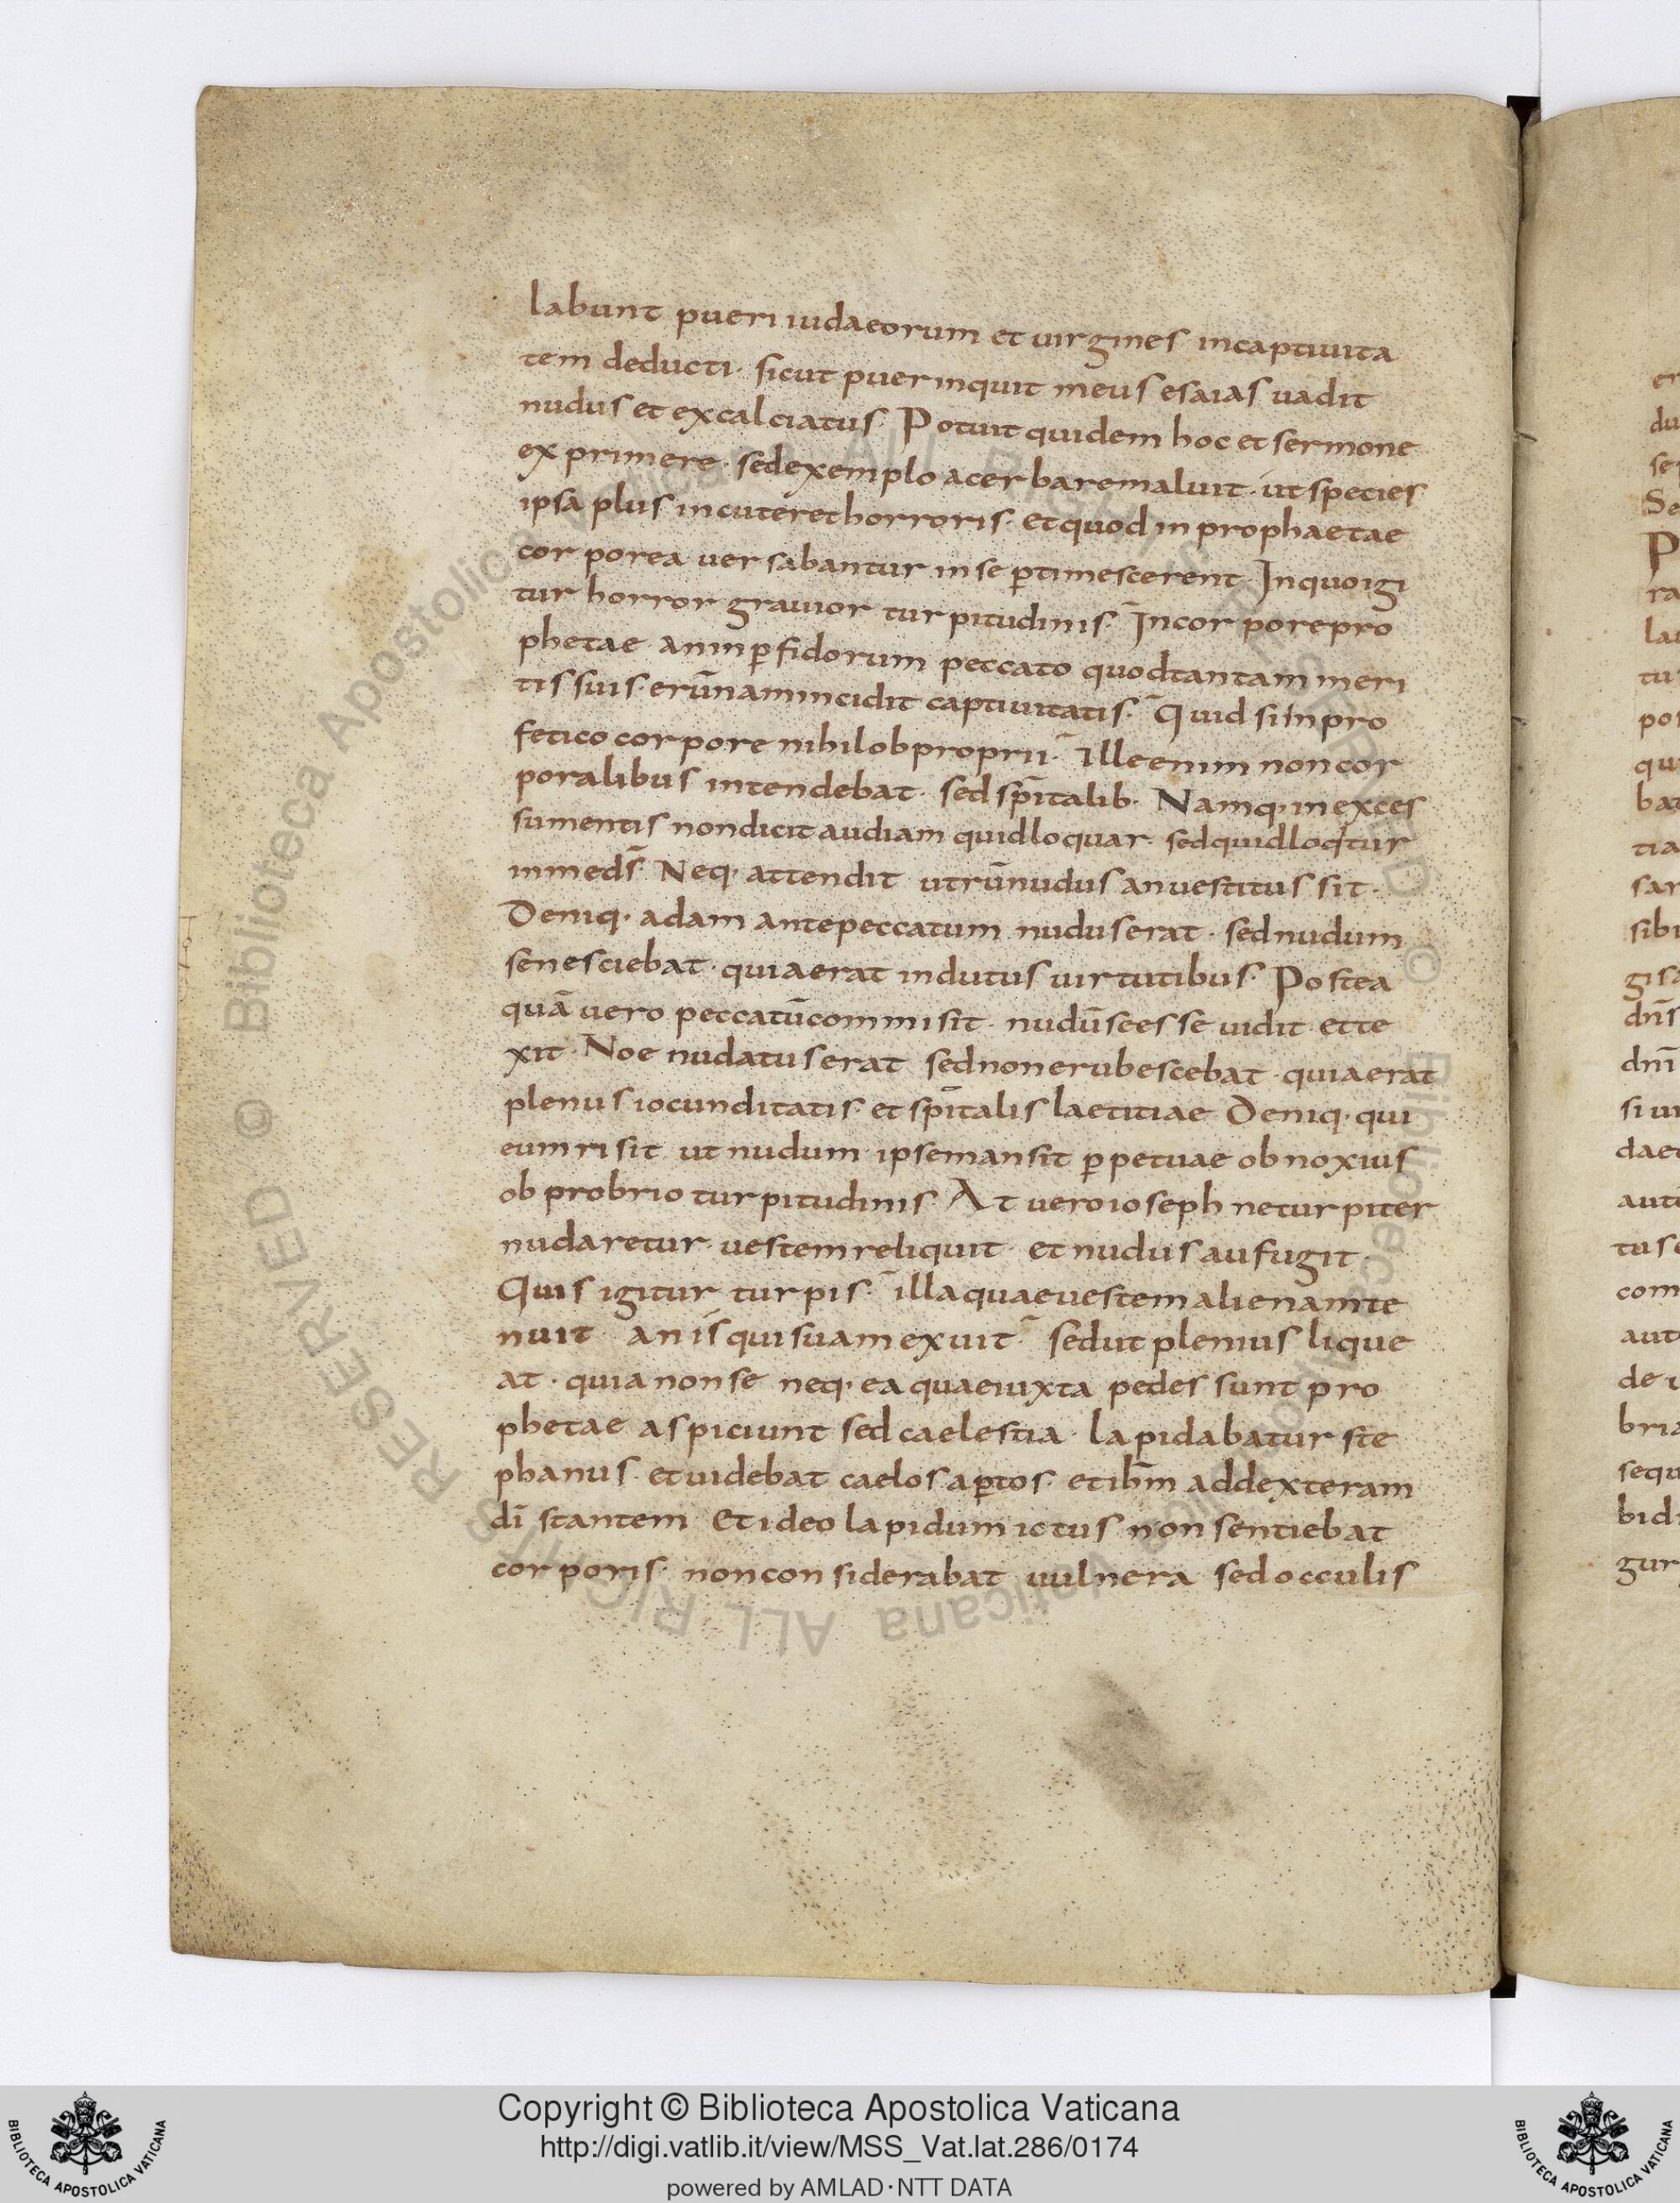 labunt pueri iudaeorum et uirgines incaptiuita
tem deducti· sicut puer inquit meus esaias uadit
nudus et excalciatus· Potuit quidem hoc et sermone
exprimere· sed exemplo acerbare maluit· ut species
ipsa plus incuteret horroris· et quod in prophaetae
corporea uersabantur in se ꝑtimescerent· In quo igi
tur horror grauior turpitudinis· In corpore pro
phetae an in ꝑfidorum peccato quod tantam meri
tis suis· erūnam incidit captiuitatis· Quid si in pro
fetico corpore nihil obproprii· Ille enim non cor
poralibus intendebat· sed sp̄italib· Namq· in exces
su mentis non dicit audiam quid loquar· sed quid loq̄tur
in me ds̄· Neq· attendit utrū nudus an uestitus sit·
Deniq· adam ante peccatum nudus erat· sed nudum
se nesciebat· quia erat indutus uirtutibus· Postea
quā uero peccatū commisit· nudū se esse uidit· et te
xit· Noe nudatus erat sed non erubescebat· quia erat
plenus iocunditatis· et sp̄italis laetitiae Deniq· qui
eum risit ut nudum ipse mansit ꝑpetuae obnoxius
obprobrio turpitudinis· At uero ioseph ne turpiter
nudaretur· uestem reliquit· et nudus aufugit·
Quis igitur turpis· illa quae uestem alienam te
nuit an is qui suam exuit· sed ut plenius lique
at· quia non se neq· ea quae iuxta pedes sunt pro
phetae aspiciunt sed caelestia· lapidabatur ste
phanus· et uidebat caelos aꝑtos· et ih̄m ad dexteram
dī stantem· Et ideo lapidum ictus non sentiebat
corporis· non considerabat uulnera sed occulis
er
du
ser
Se
P
ra
lau
tu
pos
qu
bat
tia
sar
sibi
gisa
dn̄s
dn̄i
si ui
daet
autē
tus e
com
aut
de i
bria
sequ
bidi
gur
© Biblioteca Apostolica Vaticana ALL RIGHTS RESERVED
Copyright © Biblioteca Apostolica Vaticana
http://digi.vatlib.it/view/MSS_Vat.lat.286/0174
powered by AMLAD·NTT DATA
BIBLIOTECA APOSTOLICA VATICANA
BIBLIOTECA APOSTOLICA VATICANA